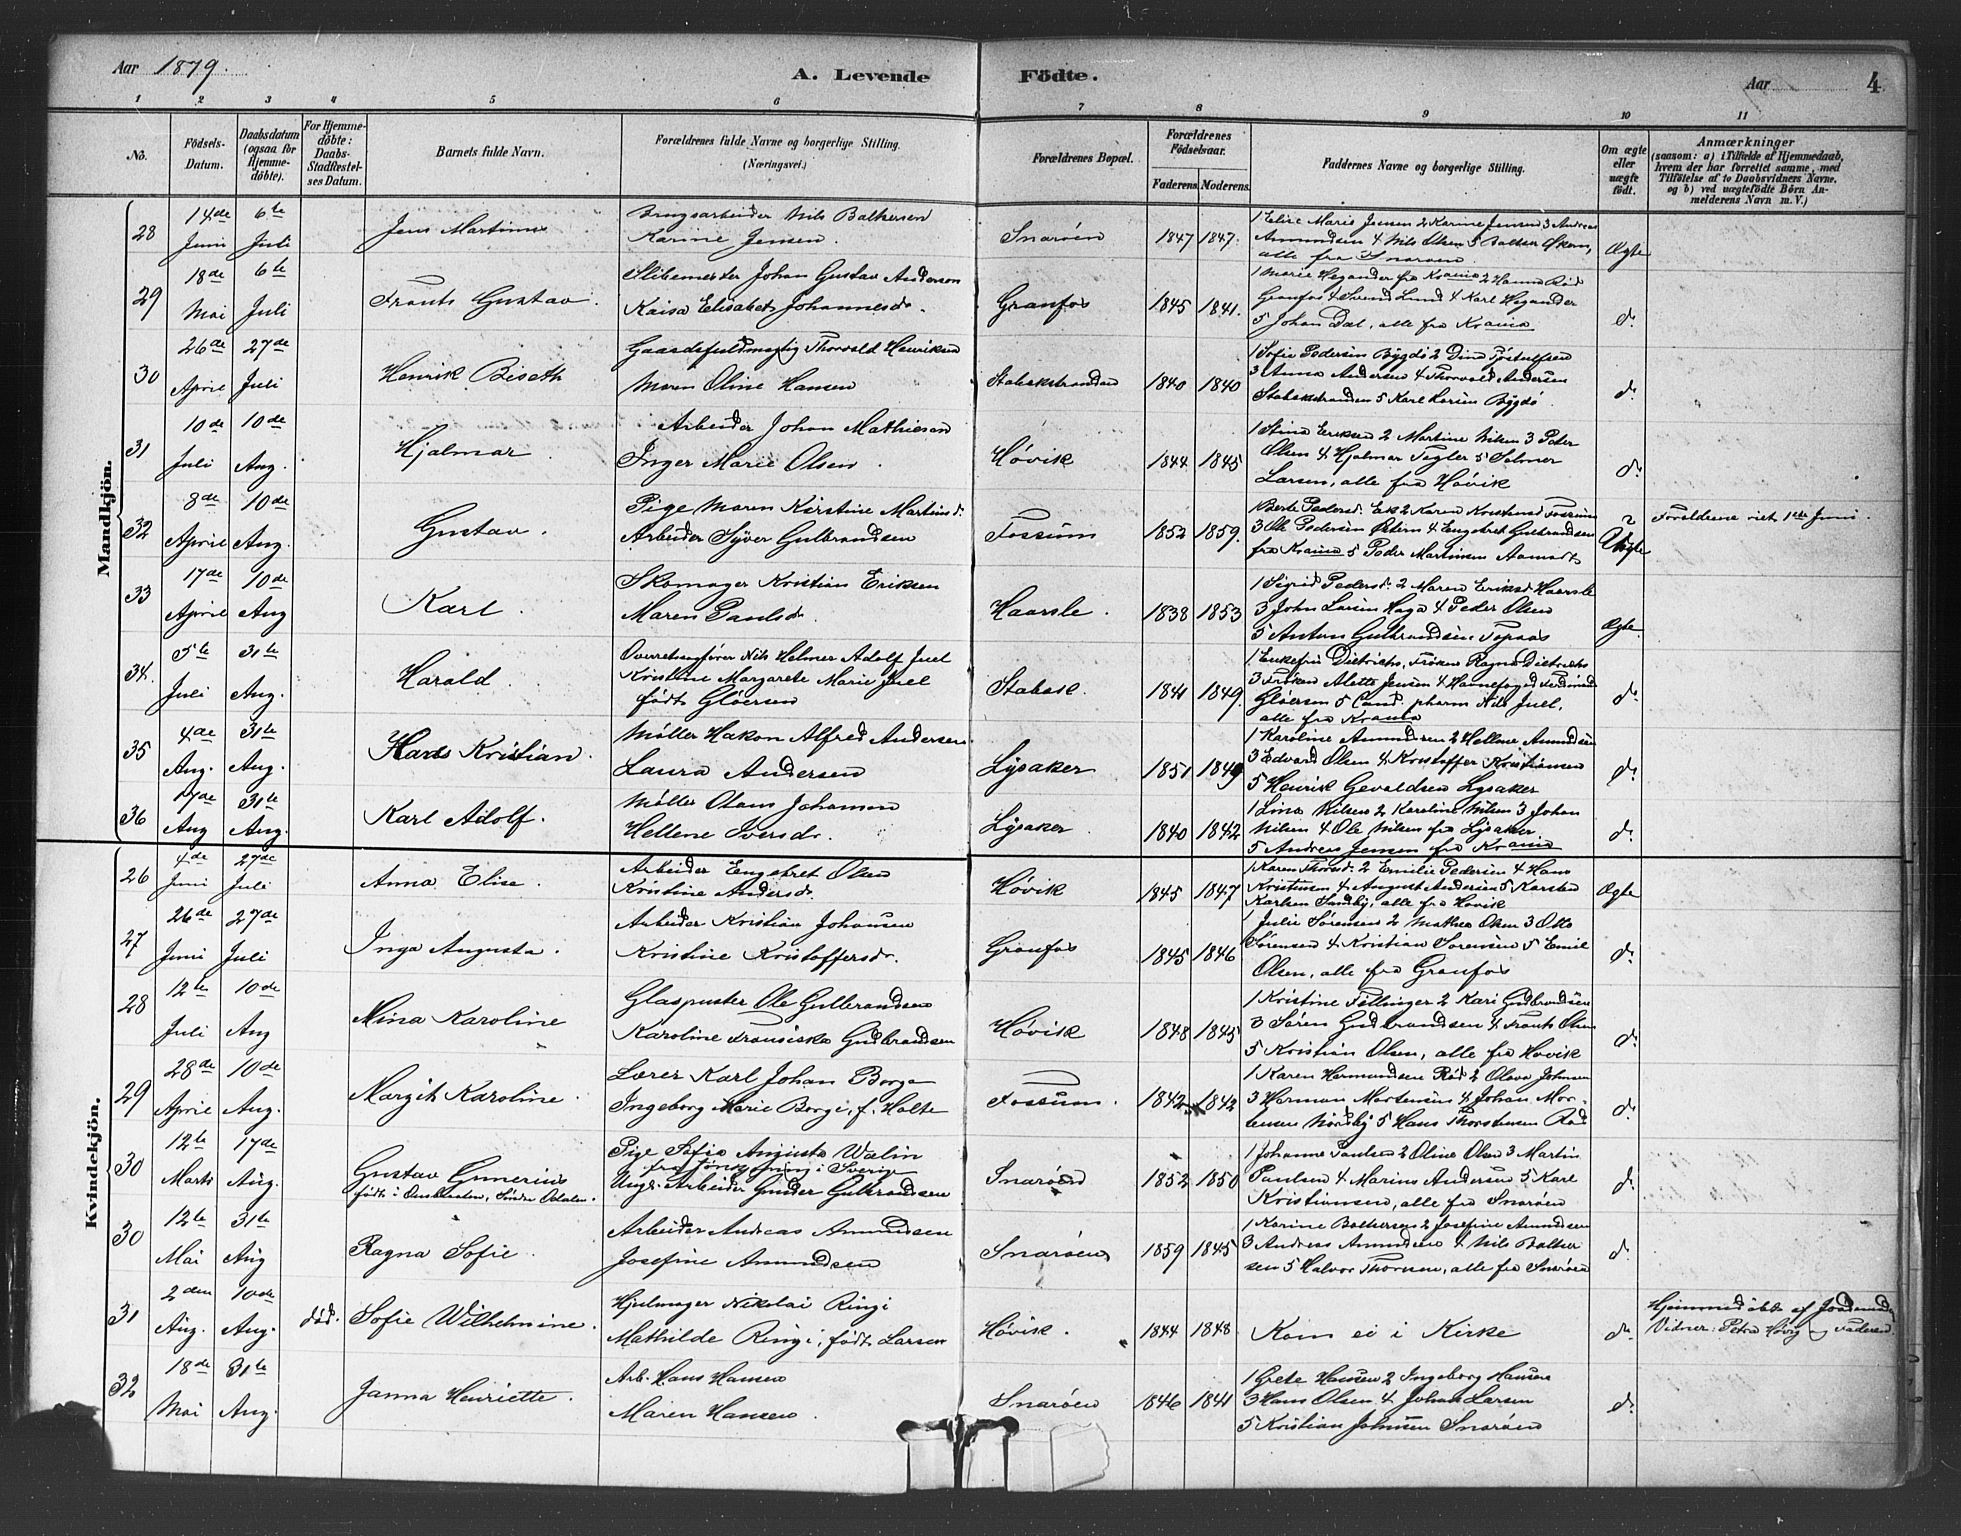 Aar 1879.
A. Levende Födte.
Aar
4
1 2 3 4 5 6 7 8 9 10 11
No.
Födsels-Datum.
Daabsdatum (ogsaa for Hjemme-döbte).
For Hjemme-döbte: Daabs-Stadfæstel-ses Datum.
Barnets fulde Navn.
Forældrenes fulde Navne og borgerlige Stilling. (Næringsvei.)
Forældrenes Bopæl.
Forældrenes Födselsaar.
Faderens. Moderens.
Faddernes Navne og borgerlige Stilling.
Om ægte eller uægte födt.
Anmærkninger
(saasom: a) i Tilfælde af Hjemmedaab, hvem der har forrettet samme, med Tilföielse af to Daabsvidners Navne, og b) ved uægtefödte Börn An-melderens Navn m. V.)
Mandkjön.
28 14de Juni 6te Juli Jens Martinus
Brugsarbeider Nils Baltersen
Karine Jensen.
Snarøen 1847 1847.
1 Elise Marie Jensen 2 Karine Jensen 3 Andreas
Amundsen 4 Nils Olsen 5 Baltser
alle fra Snarøen
Ægte
29 18de Mai 6te Juli Frants Gustav.
Slibemester Johan Gustav Anderson
Kaisa Elisabet Johannesd.
Granfos 1845 1841.
1 Marie Hegander fra Krania 2 Hanna Rød
Granfos 4 Svend Lund 4 Karl Hegander
5 Johan Dal, alle fra Krania
do
30 26de April 27de Juli Henrik Biseth
Gaardsfuldmægtig Thorvald Henriksen
Maren Oline Hansen
Stabækstranden 1840 1840
1 Sofie Pedersen Bygdø 2 Dina
3 Anna Andersen 4 Thorvald Andersen
Stabækstranden 5 Karl Larsen Bygdø.
do
31 10de Juli 10de Aug. Hjalmar.
Arbeider Johan Mathiesen
Inger Marie Olsen.
Høvik 1844 1845
1 Stina Eriksen 2 Martine Nilsen 3 Peter
Olsen 4 Hjalmar Tegler 5
Larsen, alle fra Høvik
do
32 8de April 10de Aug. Gustav.
Pige Maren Kirstine Martinsd.
Arbeider Syver Gulbrandsen
Fossum 1852 1859.
1 Berte Pedersd. Ek 2 Karen Kristensd Fossum
3 Ole Pedersen 4 Engebret Gulbrandsen
fra Krania 5 Peder Martinsen
Uægte
Forældrene viet 1ste Juni
33 17de April 10de Aug Karl.
Skomager Kristian Eriksen
Maren Paulsd.
Haarsle. 1838 1853
1 Sigrid Pedersd. 2 Maren Eriksd Haarsle
3 John Larsen Haga 4 Peder Olsen
5 Anton Gulbrandsen
Ægte.
34. 5te Juli 31te Aug. Harald.
Overretssagfører Nils Helmer Adolf Juel
Kristine Margarete Marie Juel
født Gløersen
Stabæk. 1841 1849.
1 Enkefru Dietrichs, Frøken Ragna Dietrichs
3 Frøken Alette Jensen 4 Havnefoged Ferdinand
Gløersen 5 Cand. pharm Nils Juel,
alle fra Krania
do
35 4de Aug. 31te Aug. Hans Kristian.
Møller Hakon Alfred Andersen
Laura Andersen
Lysaker 1851 1849
1 Karoline Amundsen 2 Hellene Amundsen
3 Edvard Olsen 4 Kristoffer Kristiansen
5 Henrik Gevaldsen Lysaker
do
36 17de Aug 31te Aug. Karl Adolf.
Møller Olaus Johansen
Hellene Iversd.
Lysaker. 1840 1842
1 Lina Nilsen 2 Karoline Nilsen 3 Johan
Nilsen 4 Ole Nilsen fra Lysaker
5 Andreas Jensen fra Krania
do
Kvindekjön.
26 4de Juni 27de Juli Anna Elise.
Arbeider Engebret Olsen
Kristine Andersd.
Høvik 1845 1847
1 Karen Thorsd. 2 Emilie Pedersen 4 Hans
Kristensen 4 August Andersen 5 Karsten
Karlsen Sandby, alle fra Høvik
Ægte
27 26de Juni 27de Juli Inga Augusta.
Arbeider Kristian Johansen
Kristine Kristoffersd.
Granfos 1845 1846
1 Julie Sørensen 2 Mathea Olsen 3 Otto
Sørensen 4 Kristian Sørensen 5 Emil
Olsen, alle fra Granfos
do
28 12te Juli 10de Aug Nina Karoline
Glaspuster Ole Gulbrandsen
Karoline Fransiska Gulbrandsen
Høvik 1848 1845
1 Kristine Fellinger 2 Kari Gudbrandsen
3 Søren Gudbrandsen 4 Frants Olsen
5 Kristian Olsen, alle fra Høvik
do
29 28de April 10de Aug. Margit Karoline.
Lærer Karl Johan Borge
Ingeborg Marie Borgi, f. Holte
Fossum. 1842 1842
1 Karen Hermansen Rød 2 Olava Johnsen
3 Herman Mortensen 4 Johan Mor-
tensen Nordby 5 Hans Thorstensen Rød
do
30 12te Marts 17de Aug. Gustav Gunerius
født i Søndre Odalen.
Pige Sofie Augusta Walin
fra Jønkøping i Sverige
Ungk. Arbeider Gunder Gulbrandsen
Snarøen 1852 1850
1 Johanne Paulsen 2 Oline Olsen 3 Martin
Paulsen 4 Marius Andersen 5 Karl
Kristiansen, alle fra Snarøen
do
30 12te Mai 31te Aug Ragna Sofie.
Arbeider Andreas Amundsen
Josefine Amundsen
Snarøen 1859 1845
1 Karine Baltersen 2 Josefine Amundsen
3 Andreas Amundsen 4 Nils Balter
sen 5 Halvor Thoresen, alle fra Snarøen
do
31 2den Aug. 10de Aug. død. Sofie Wilhelmine.
Hjulmager Nikolai Ringi
Mathilde Ringi, født Larsen
Høvik. 1844 1848
Kom ei i Kirke
do
Hjemmedøbt af Jordemoder
Vidner: Petra Høvig og Faderen.
32 18de Mai 31te Aug. Janna Henriette.
Arb. Hans Hansen
Maren Hansen.
Snarøen 1846 1841
1 Grete Hansen 2 Ingeborg Hansen
3 Hans Olsen 4 Johan Larsen
5 Kristian Johnsen Snarøen
do